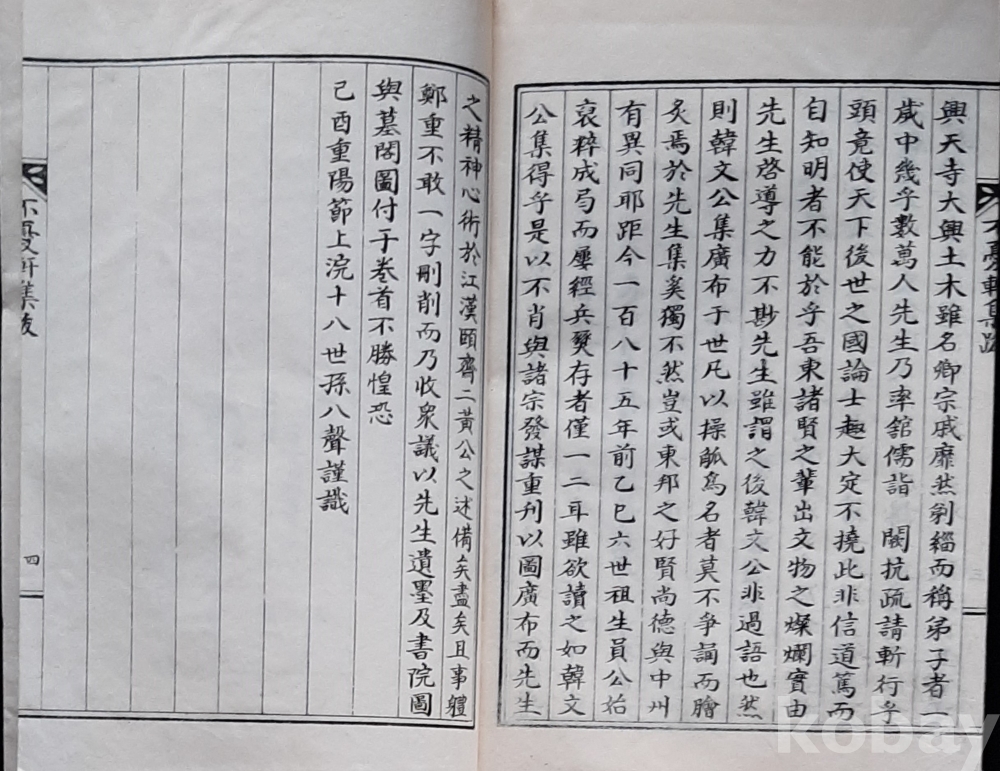 興天寺大興土木雖名卿宗戚靡然剃緇而稱弟子者一
歲中幾乎數萬人先生乃率舘儒詣 闕抗疏請斬行乎
頭竟使天下後世之國論士趣大定不撓此非信道篤而
自知明者不能於乎吾東諸賢之輩出文物之燦爛實由
先生啓導之力不尠先生雖謂之後韓文公非過語也然
則韓文公集廣布于世凡以操觚爲名者莫不爭誦而膾
炙焉於先生集奚獨不然豈或東邦之好賢尚德與中州
有異同耶距今一百八十五年前乙巳六世祖生員公始
裒粹成局而屢經兵燹存者僅一二耳雖欲讀之如韓文
公集得乎是以不肖與諸宗發謀重刊以圖廣布而先生
之精神心術於江漢頤齋二黃公之述備矣盡矣且事體
鄭重不敢一字刪削而乃收衆議以先生遺墨及書院圖
與墓閣圖付于卷首不勝惶恐
己酉重陽節上浣十八世孫八聲謹識
不憂軒集跋
三
不憂軒集跋
四
kobay